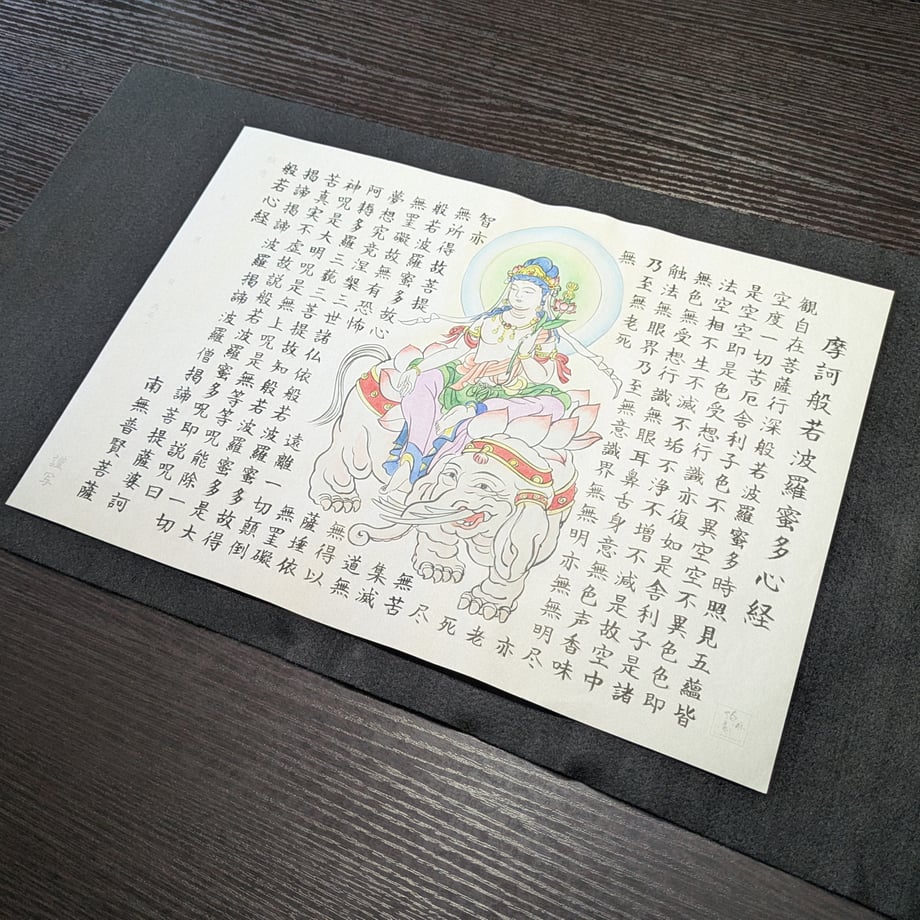 摩訶般若波羅蜜多心経
観自在菩薩行深般若波羅蜜多時照見五蘊皆
空度一切苦厄舎利子色不異空空不異色色即
是空空即是色受想行識亦復如是舎利子是諸
法空相不生不滅不垢不浄不増不減是故空中
無色無受想行識無眼耳鼻舌身意無色声香味
触法無眼界乃至無意識界無無明亦無無明尽
乃至無老死亦
無老
死
尽
無苦
集滅
道無
智亦無得以
無所得故菩提薩埵依
般若波羅蜜多故心無罣礙
無罣礙故無有恐怖遠離一切顛倒
夢想究竟涅槃三世諸仏依般若波羅蜜多故得
阿耨多羅三藐三菩提故知般若波羅蜜多是大
神呪是大明呪是無上呪是無等等呪能除一切
苦真実不虚故説般若波羅蜜多呪即説呪曰
掲諦掲諦波羅掲諦波羅僧掲諦菩提薩婆訶
般若心経
南無普賢菩薩
謹写